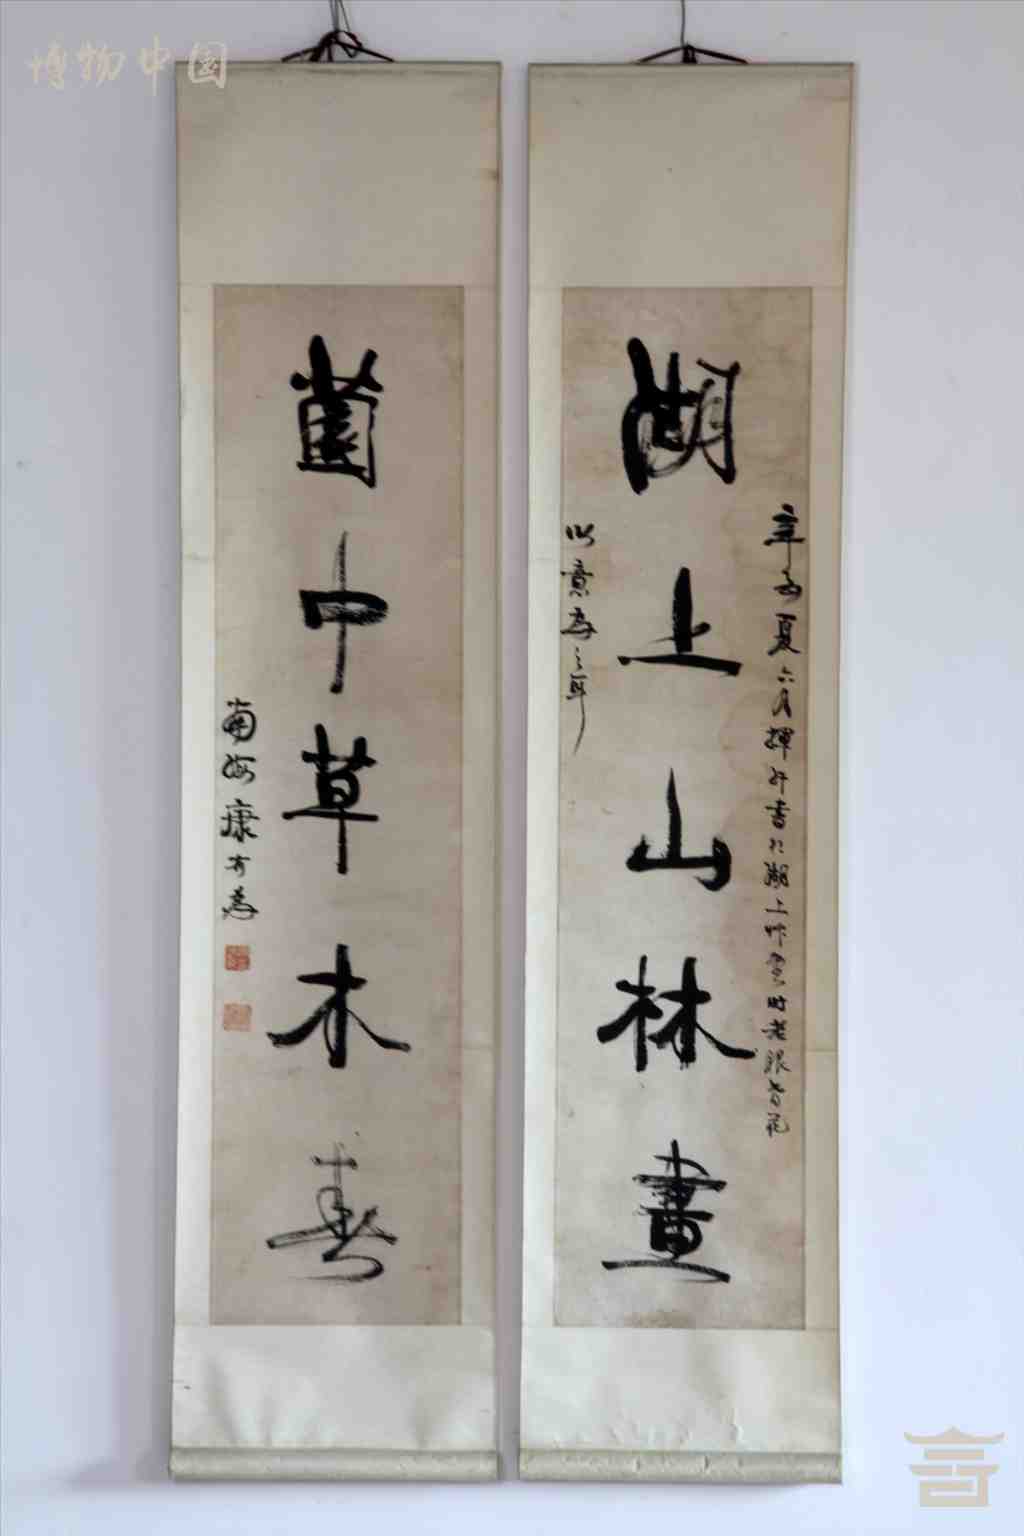 博物中国
辛酉夏六月揮汗書於湖上
時老眼昏花
湖上山林畫
以意為之耳
園中草木春
南海康有為